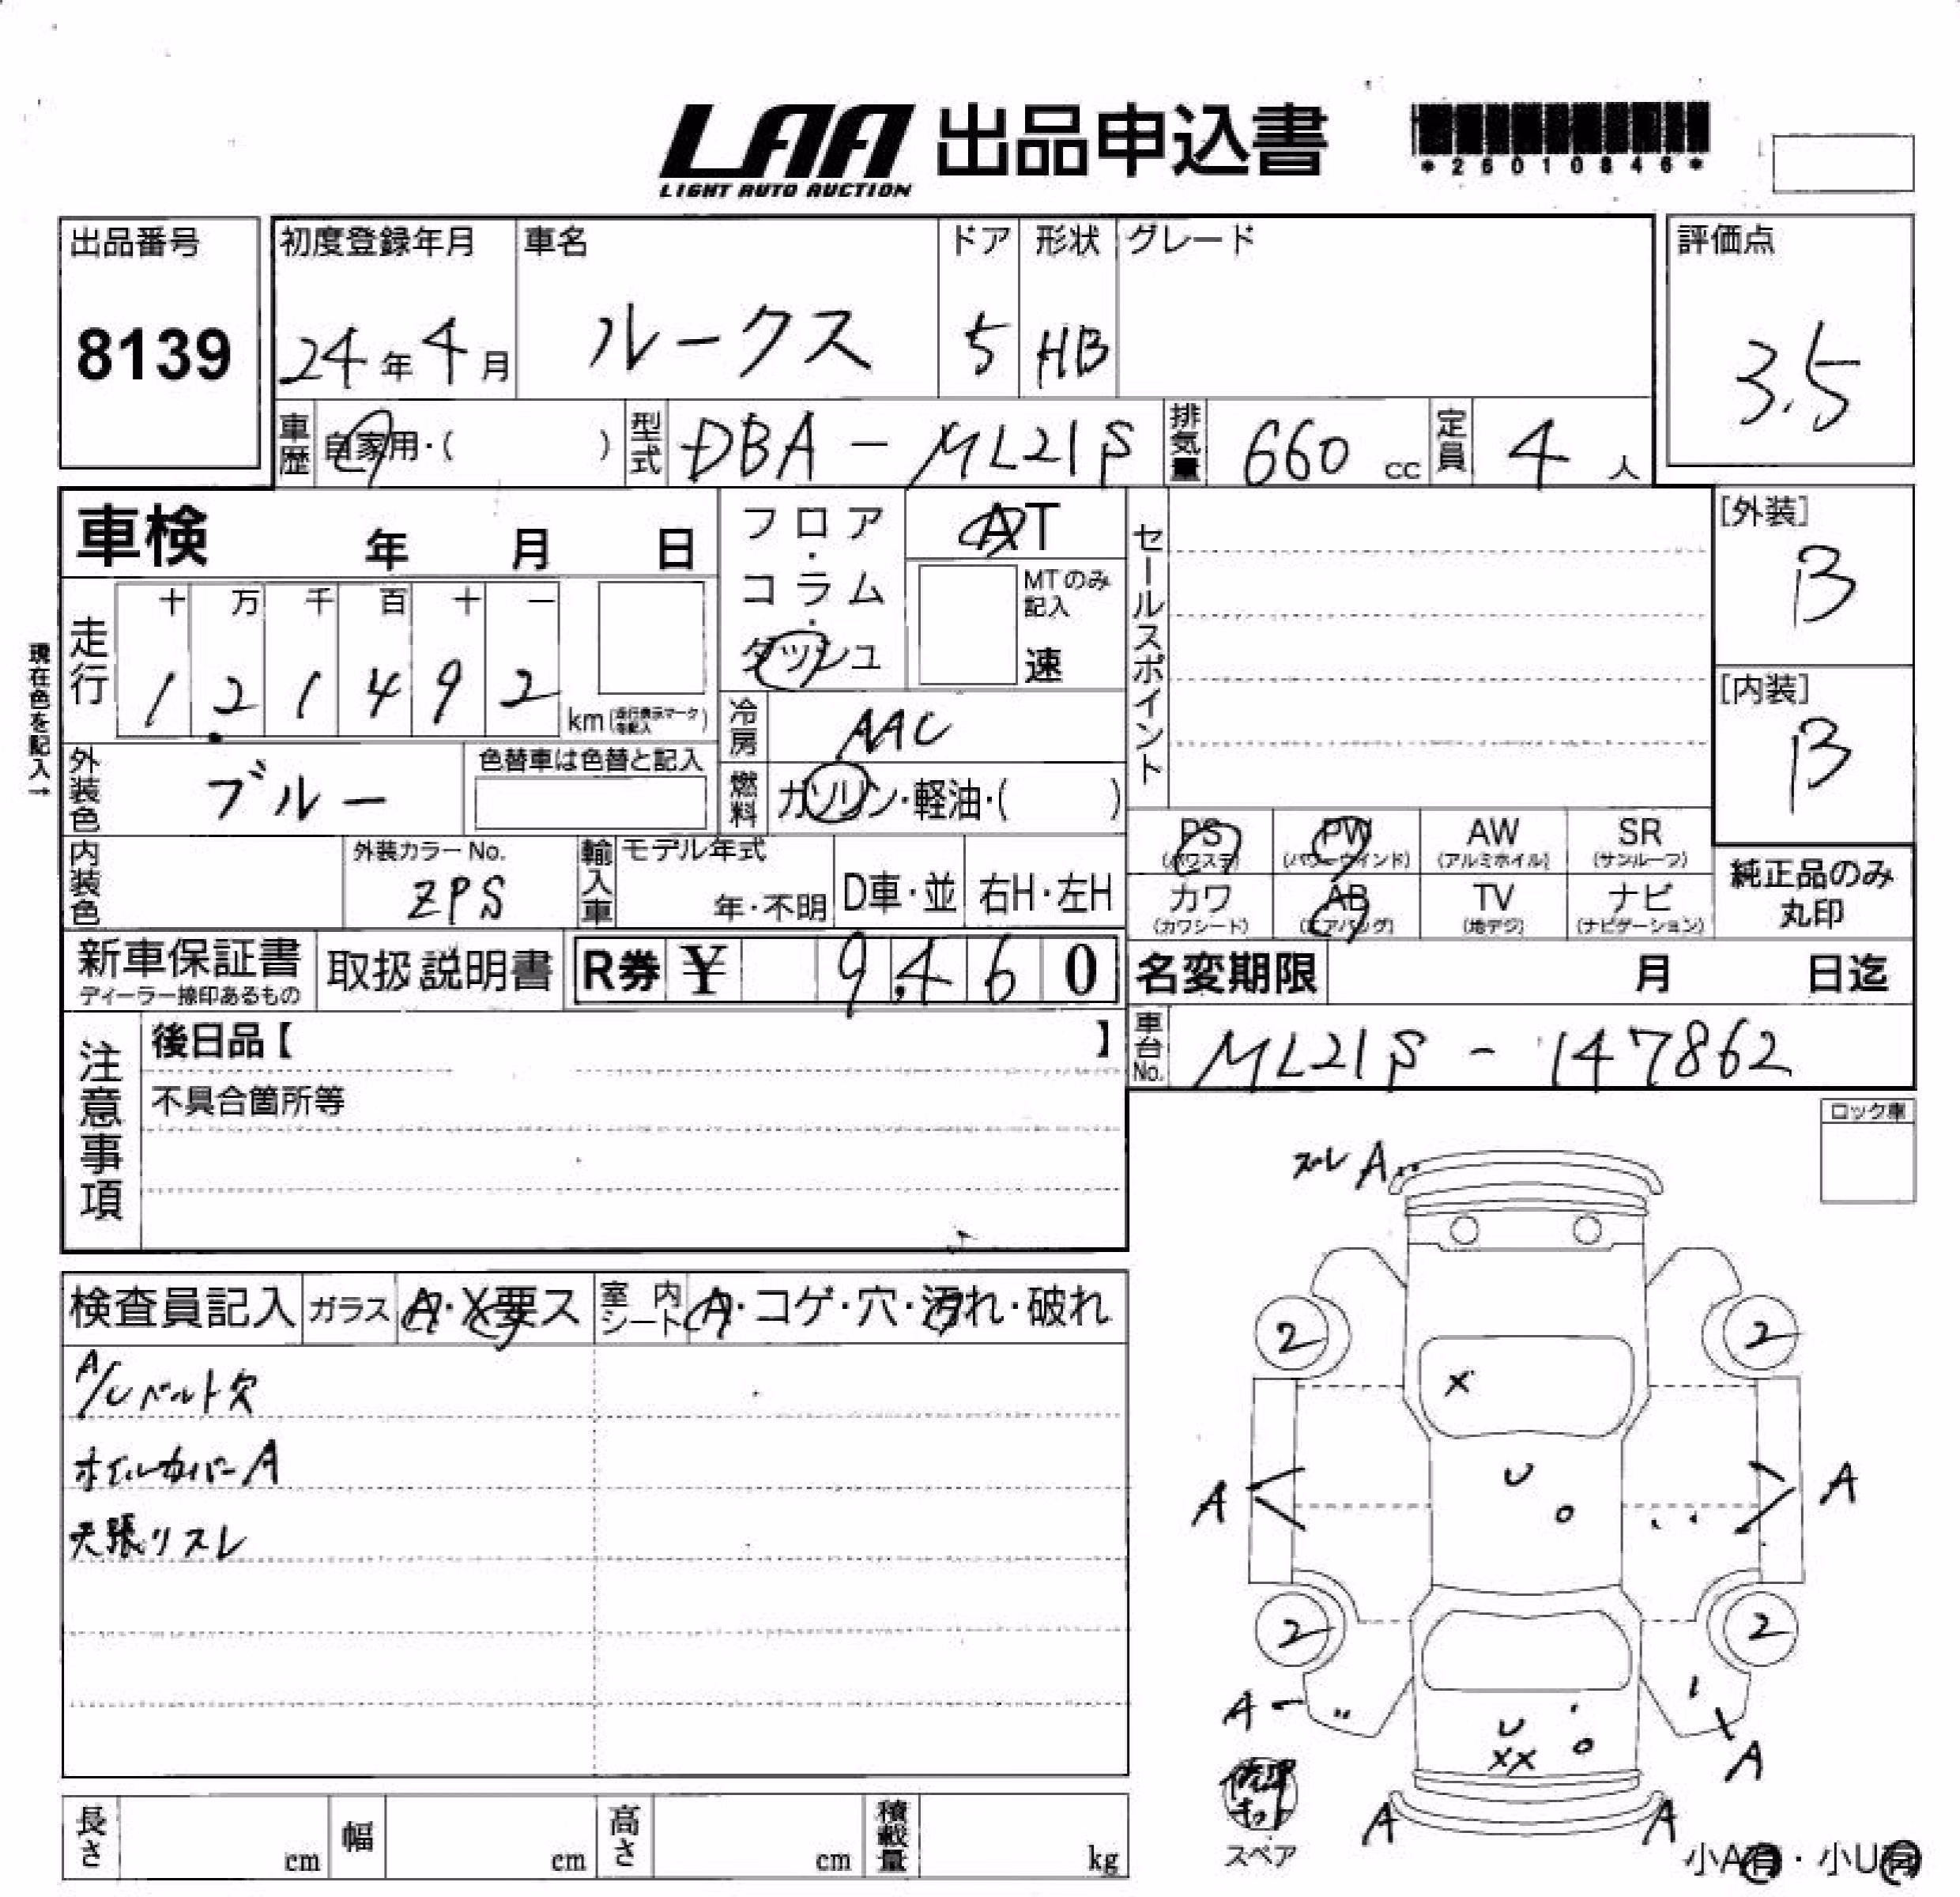 LAA 出品申込書
LIGHT AUTO AUCTION
*26010846*
出品番号
8139
初度登録年月
24年4月
車名
ルークス
ドア
5
形状
HB
グレード
評価点
3.5
車歴
自家用・( )
型式
DBA-ML21S
排気量
660 cc
定員
4 人
車検 年 月 日
フロア・コラム・ダッシュ
AT
MTのみ記入
速
セールスポイント
[外装]
B
[内装]
B
現在色を記入→
走行
十 万 千 百 十 一
1 2 1 4 9 2 km (走行表示マークを記入)
冷房
AAC
外装色
ブルー
色替車は色替と記入
燃料
ガソリン・軽油・( )
内装色
外装カラーNo.
ZPS
輸入車
モデル年式
年・不明
D車・並
右H・左H
PS
(パワステ)
PW
(パワーウインド)
AW
(アルミホイル)
SR
(サンルーフ)
カワ
(カワシート)
AB
(エアバッグ)
TV
(地デジ)
ナビ
(ナビゲーション)
純正品のみ
丸印
新車保証書
ディーラー捺印あるもの
取扱説明書
R券 ¥ 9,460
名変期限 月 日迄
注意事項
後日品【 】
不具合箇所等
車台No.
ML21S - 147862
ロック車
検査員記入
ガラス
A・X要ス
室内シート
A・コゲ・穴・汚れ・破れ
A/Cベルト欠
ホイルカバーA
天張リスレ
スレ A
2 2
X
U
A A
2 2
A
U
XX
A
A A
修理キット
スペア
小A有・小U有
長さ cm
幅 cm
高さ cm
積載量 kg